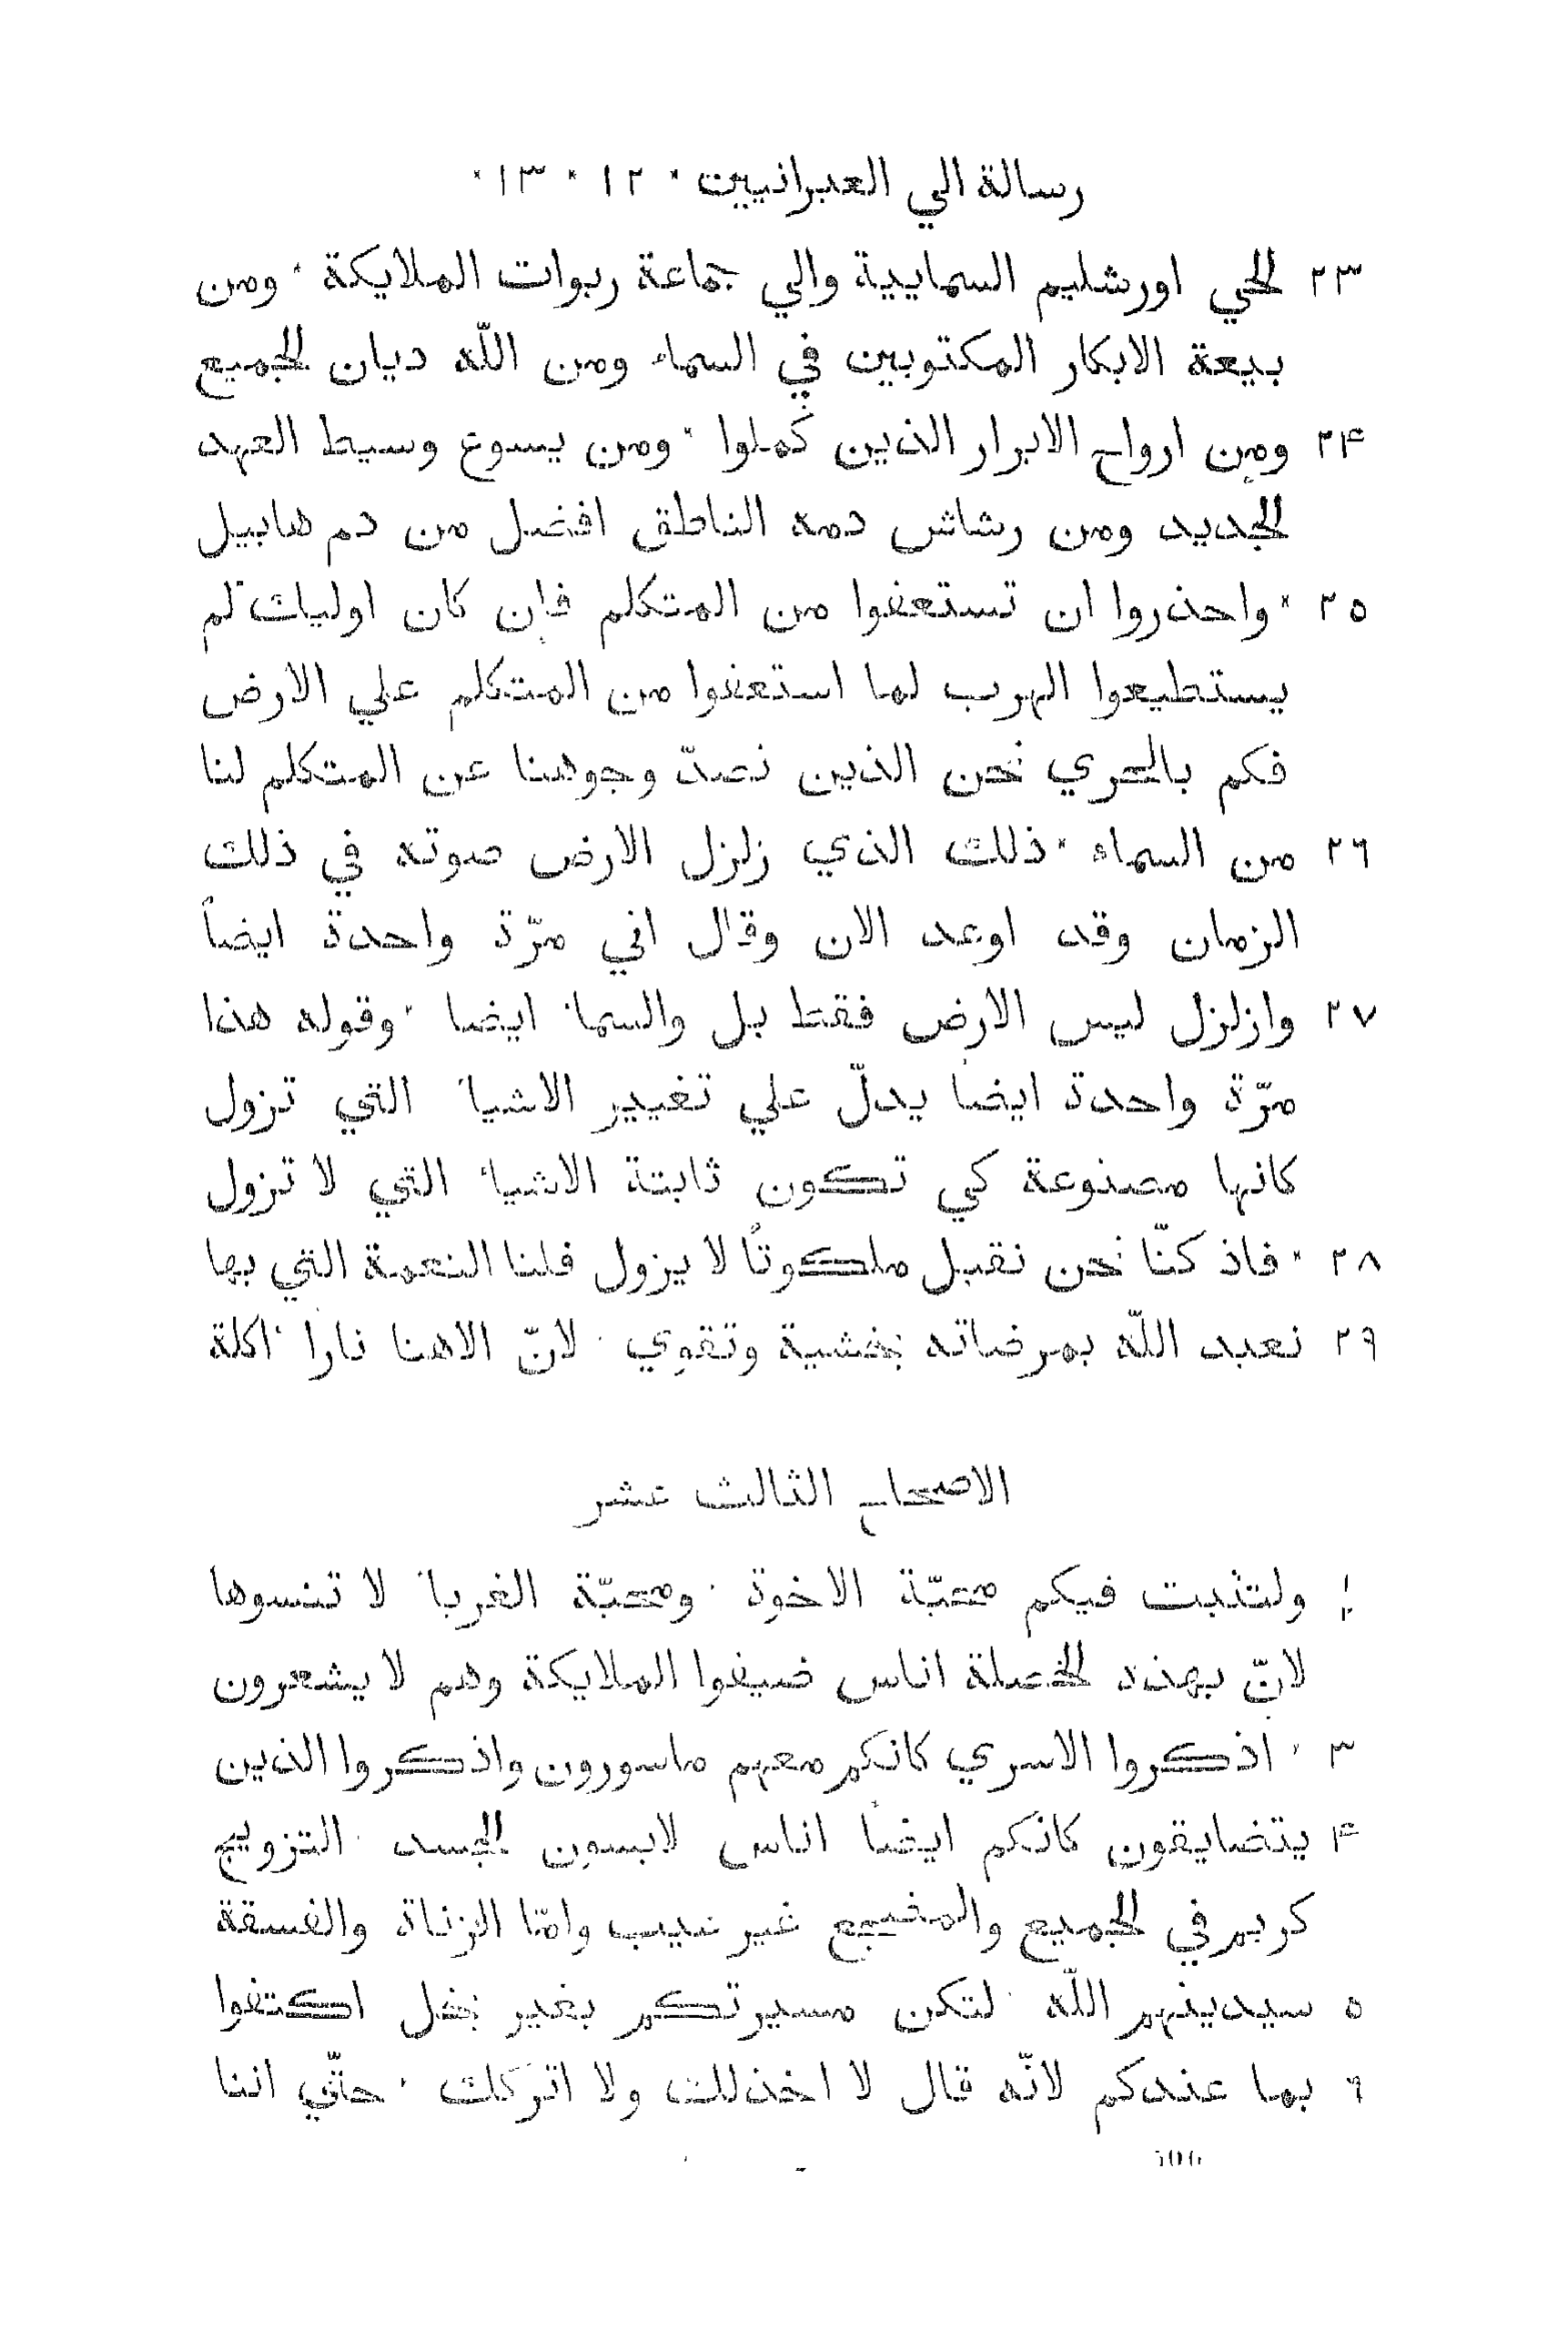 رسالة الي العبرانيين * ١٢ * ١٣ *
٢٣ الحي اورشليم السمايية والي جماعة ربوات الملايكة * ومن
بيعة الابكار المكتوبين في السماء ومن اللّه ديان الجميع
٢۴ ومن ارواح الابرار الذين كملوا * ومن يسوع وسيط العهد
الجديد ومن رشاش دمه الناطق افضل من دم هابيل
٢٥ * واحذروا ان تستعفوا من المتكلم فان كان اوليك لم
يستطيعوا الهرب لما استعفوا من المتكلم علي الارض
فكم بالحري نحن الذين نصدّ وجوهنا عن المتكلم لنا
٢٦ من السماء * ذلك الذي زلزل الارض صوته في ذلك
الزمان وقد اوعد الان وقال اني مرّة واحدة ايضاً
٢٧ وازلزل ليس الارض فقط بل والسماء ايضا * وقوله هذا
مرّة واحدة ايضاً يدلّ علي تغيير الاشياء التي تزول
كانها مصنوعة كي تكون ثابتة الاشياء التي لا تزول
٢٨ * فاذ كنّا نحن نقبل ملكوتاً لا يزول فلنا النعمة التي بها
٢٩ نعبد اللّه بمرضاته بخشية وتقوي * لانّ الاهنا ناراً اكلة
الاصحاح الثالث عشر
١ ٢ ولتثبت فيكم محبّة الاخوة * ومحبّة الغرباء لا تنسوها
لانّ بهذه الخصلة اناس ضيفوا الملايكة وهم لا يشعرون
٣ * اذكروا الاسري كانكم معهم ماسورون واذكروا الذين
۴ يتضايقون كانكم ايضاً اناس لابسون الجسد * التزويج
كريم في الجميع والمضجع غير نيب وامّا الزناة والفسقة
٥ سيدينهم اللّه * لتكن مسيرتكم بغير بخل اكتفوا
٦ بما عندكم لانّه قال لا اخذلك ولا اتركك * حتّي اننا
506